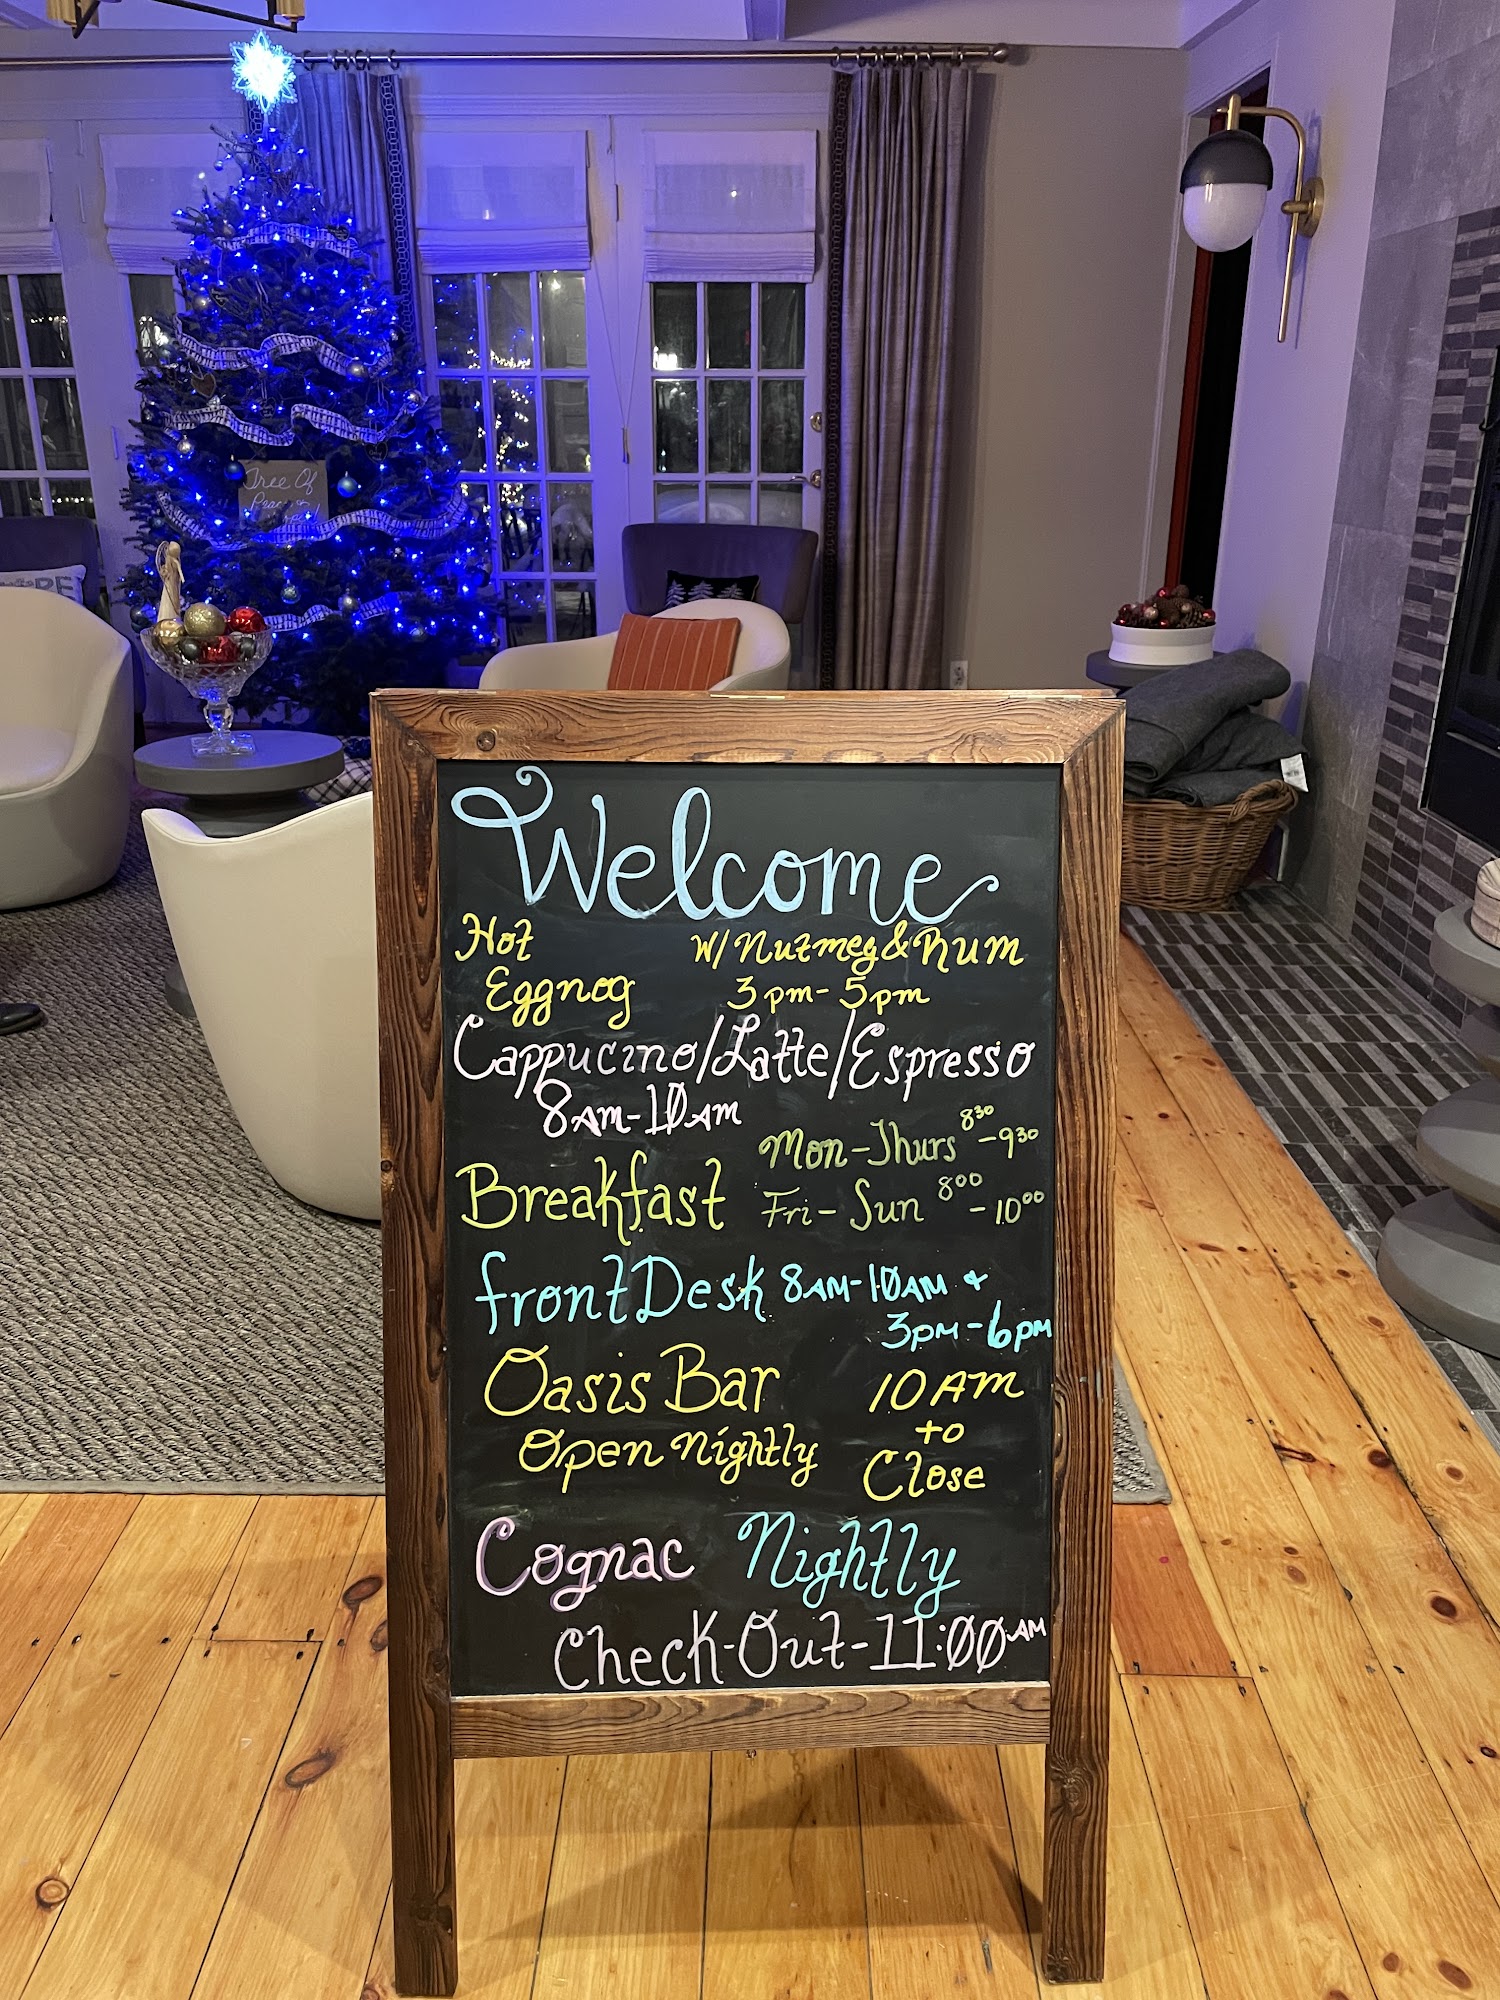 Tree Of
Peace &
RE
Welcome
Hot w/ Nutmeg & Rum
Eggnog 3pm - 5pm
Cappucino/Latte/Espresso
8AM-10AM
Mon-Thurs 8:30 - 9:30
Breakfast Fri - Sun 8:00 - 10:00
front Desk 8AM-10AM &
3pm - 6pm
Oasis Bar 10AM
Open Nightly to
Close
Cognac Nightly
Check-Out - 11:00 AM